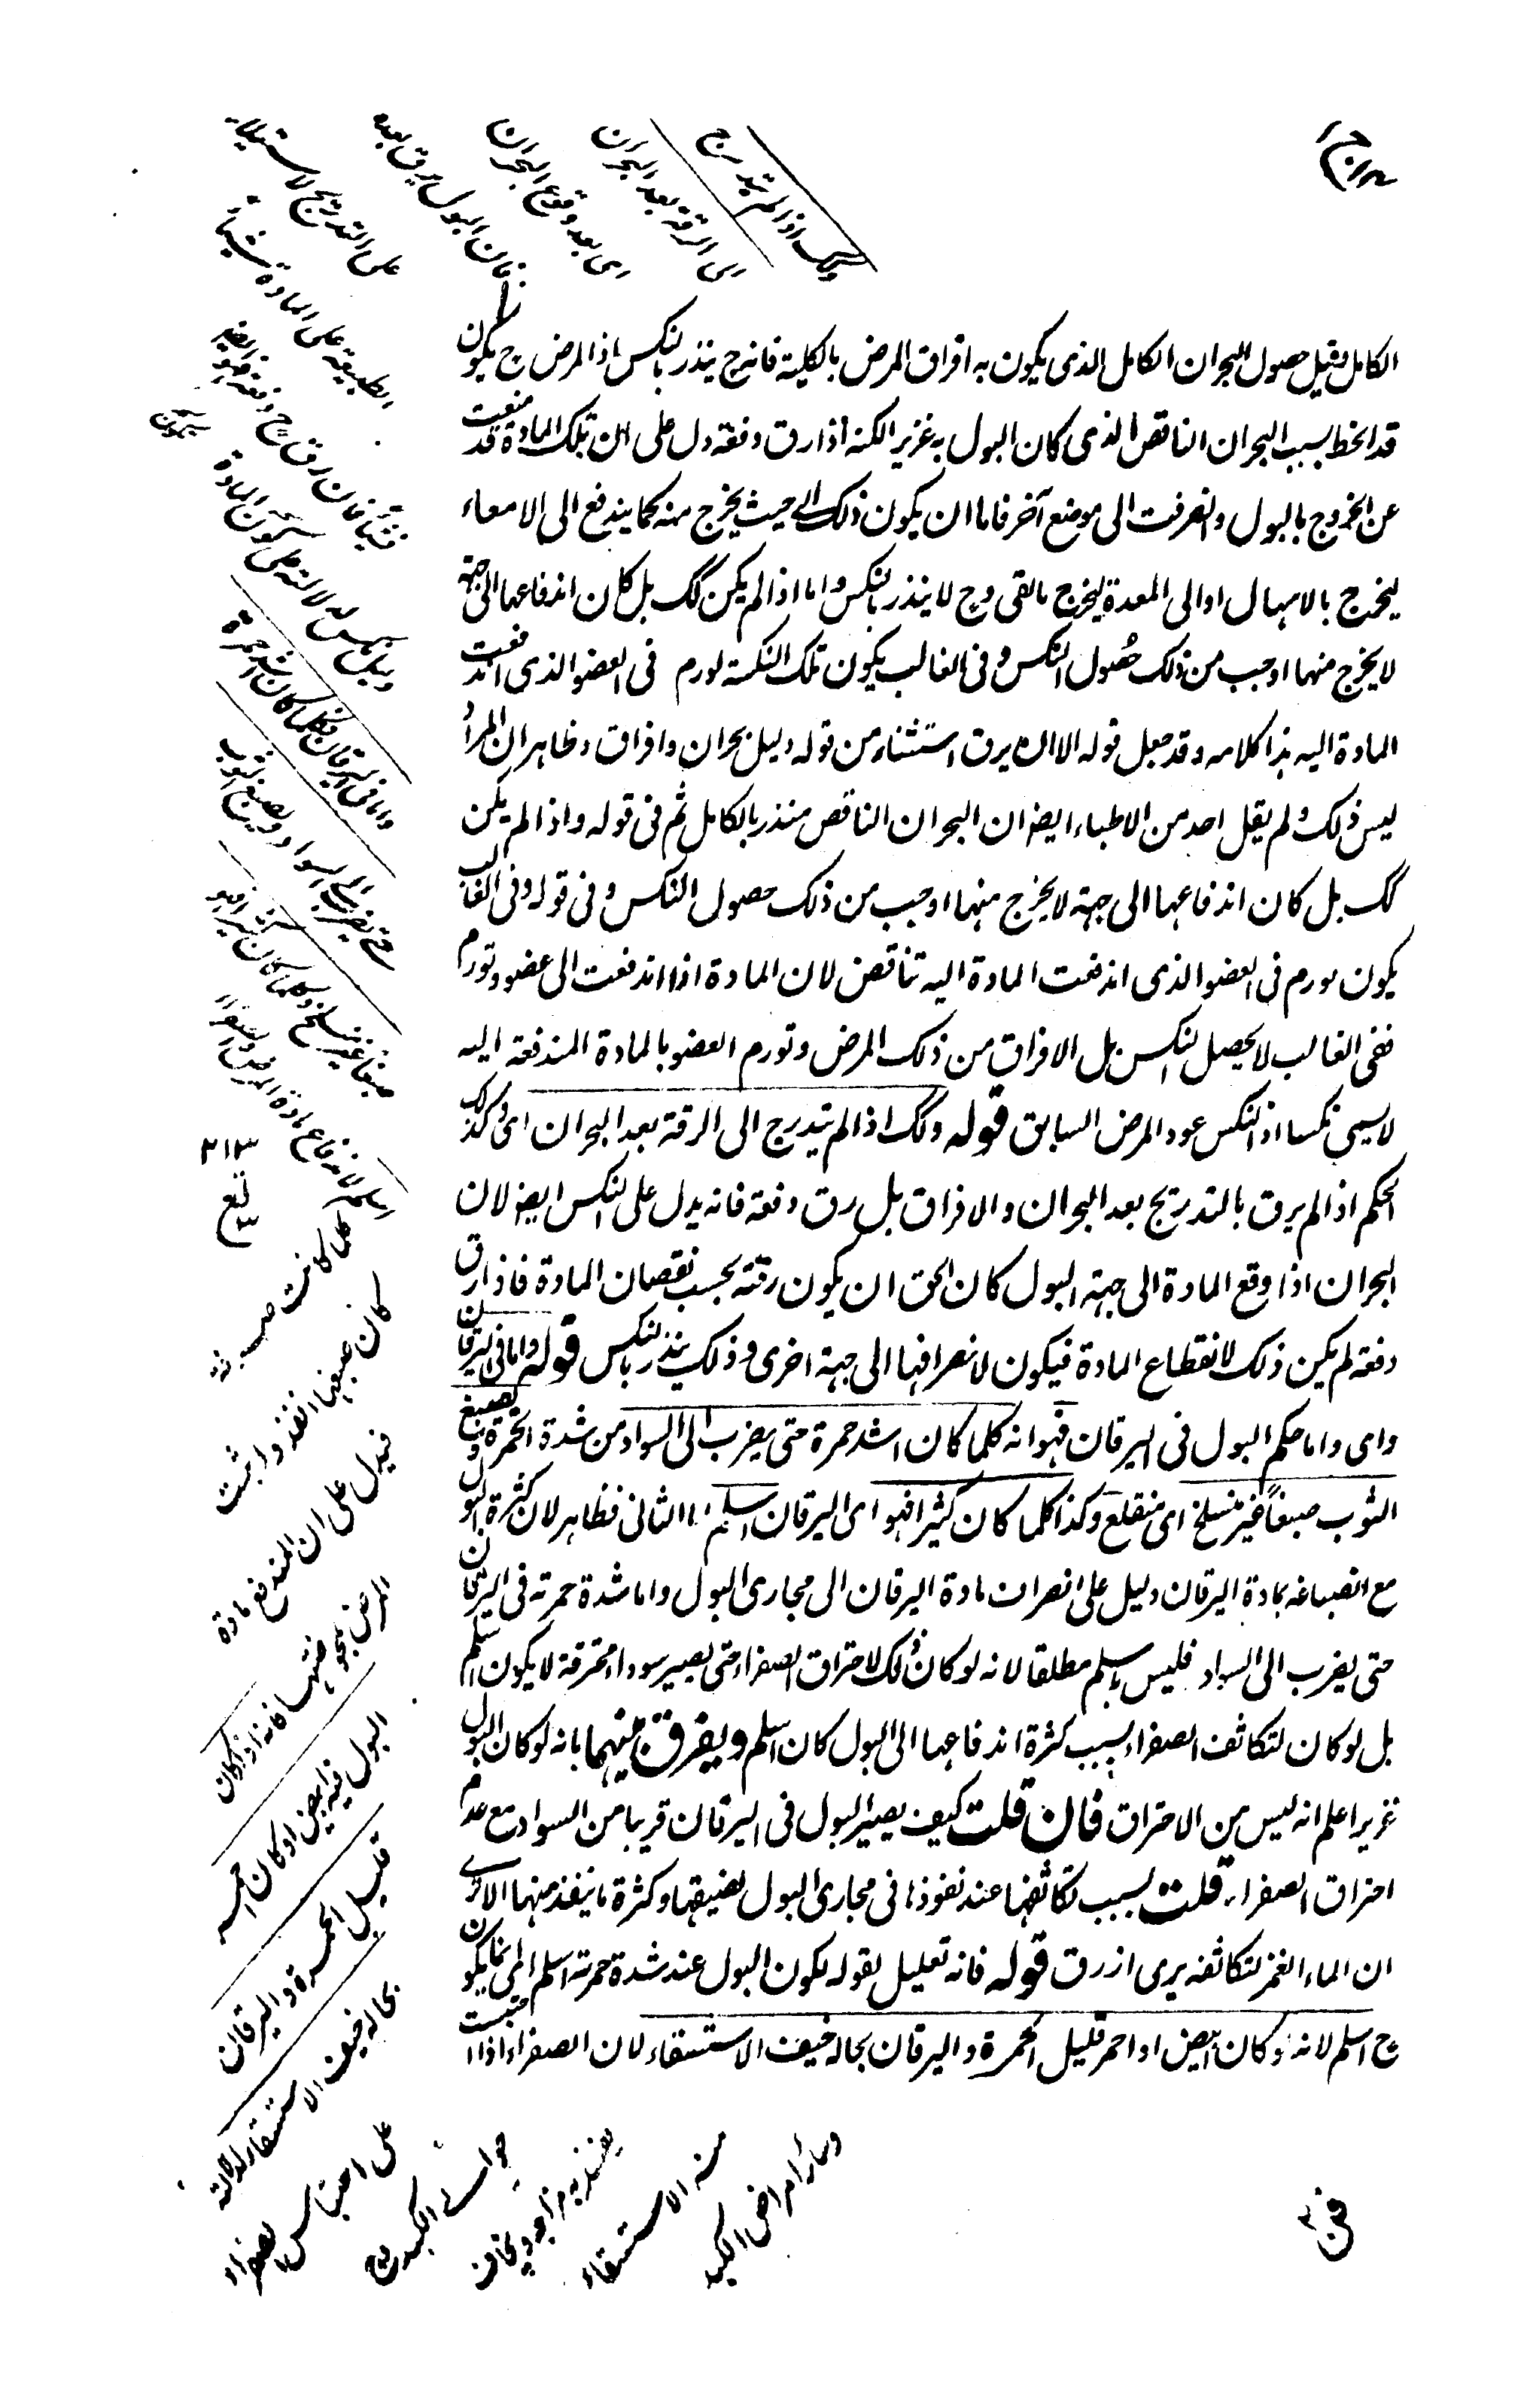 الكامل قبيل حصول البحران الكامل الذى يكون به افراق المرض بالكلية فانه ح ينذر بالنكس اذ المرض ح يكون
قد انحط بسبب البحران الناقص الذى كان البول به غزير الكنه اذا رق دفعة دل على ان تلك المادة قد منعت
عن الخروج بالبول وانصرفت الى موضع آخر فاما ان يكون ذلك الى حيث يخرج منه كما يندفع الى الامعاء
ليخرج بالاسهال او الى المعدة ليخرج بالقى وح لا ينذر بالنكس واما اذا لم يكن كك بل كان اندفاعها الى جهة
لا يخرج منها اوجب من ذلك حصول النكس وفى الغالب يكون تلك النكسة لورم فى العضو الذى اندفعت
المادة اليه هذا كلامه وقد جعل قوله الا ان يرق استثناء من قوله دليل بحران وافراق وظاهر ان المراد
ليس ذلك ولم يقل احد من الاطباء ايضا ان البحران الناقص منذر بالكامل ثم فى قوله واذا لم يكن
كك بل كان اندفاعها الى جهة لا يخرج منها اوجب من ذلك حصول النكس وفى قوله وفى الغالب
يكون لورم فى العضو الذى اندفعت المادة اليه تناقض لان المادة اذا اندفعت الى عضو وتورم
ففى الغالب لا يحصل النكس بل الافراق من ذلك المرض وتورم العضو بالمادة المندفعة اليه
لا يسمى نكسا اذ النكس عود المرض السابق قوله وكك اذا لم يتدرج الى الرقة بعد البحران اى وكذلك
الحكم اذا لم يرق بالتدريج بعد البحران والافراق بل رق دفعة فانه يدل على النكس ايضا لان
البحران اذا وقع المادة الى جهة البول كان الحق ان يكون رقته بحسب نقصان المادة فاذا رق
دفعة لم يكن ذلك لانقطاع المادة فيكون لانصرافها الى جهة اخرى وذلك ينذر بالنكس قوله واما فى اليرقان
واى واما حكم البول فى اليرقان فهو انه كلما كان اشد حمرة حتى يضرب الى السواد من شدة الحمرة ويصبغ
الثوب صبغاً غير منسلخ اى منقلع وكذا كلما كان كثيرا فهو اى اليرقان اسلم اما الثانى فظاهر لان كثرة البول
مع انصباغه بمادة اليرقان دليل على انصراف مادة اليرقان الى مجارى البول واما شدة حمرته فى اليرقان
حتى يضرب الى السواد فليس باسلم مطلقا لانه لو كان ذلك لاحتراق الصفراء حتى يصير سوداء محترقة لا يكون اسلم
بل لو كان لتكاثف الصفراء بسبب كثرة اندفاعها الى البول كان اسلم ويفرق بينهما بانه لو كان البول
غزيرا علم انه ليس من الاحتراق فان قلت كيف يصير البول فى اليرقان قريبا من السواد مع عدم
احتراق الصفراء قلت بسبب تكاثفها عند نفوذها فى مجارى البول لضيقها وكثرة ما ينفذ منها الا ترى
ان الماء الغمر لتكاثفه يرى ازرق قوله فانه تعليل لقوله لكون البول عند شدة حمرته اسلم اى انما يكون
ح اسلم لانه لو كان ابيض او احمر قليل الحمرة واليرقان بحاله خيف الاستسقاء لان الصفراء اذا احتبست
وكك اذا لم يتدرج
الى الرقة بعد البحران
اى بعد وقوع البحران
فان البول يرق بعده
على التدريج لاستيلاء
الطبيعة على المادة شيئا
واما فى اليرقان فكلما كان اشد حمرة
حتى يضرب الى السواد ويصبغ الثوب
صبغا غير منسلخ وكلما كان كثيرا فهو
اسلم لاندفاع مادة المرض
٣١٣
كلما كانت
كان صبغها انفذ واثبت
فيدل على ان المندفع مادة
المرض
البول فيه ابيض او كان احمر
قليل الحمرة واليرقان
بحاله خيف الاستسقاء لدلالته
على احتباس الصفراء
منه الاستسقاء
وسائر امراض الكبد